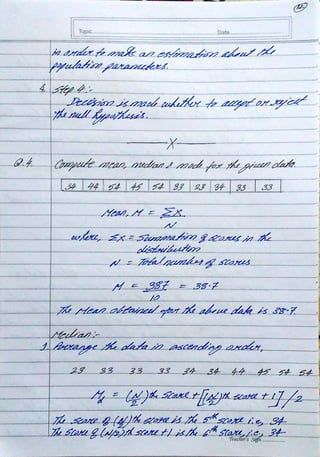 Topic Date
in order to make an estimation about the
population parameters.
4. Step 4:-
Decision is made whether to accept or reject
the null hypothesis.
X
Q.4. Compute mean, median & mode for the given data.
34 44 54 45 54 33 23 34 33 33
Mean, M = ΣX
N
where, Σx = Summation of scores in the
distribution
N = Total number of scores
M = 387 = 38.7
10
The Mean obtained for the above data is 38.7.
Median:-
1. Arrange the data in ascending order,
23 33 33 33 34 34 44 45 54 54
Md = (N/2)th score + [(N/2)th score + 1] / 2
The score of (N/2)th score is the 5th score i.e, 34
The score of (N/2)th score + 1 is the 6th score, i.e, 34
Teacher's Sign